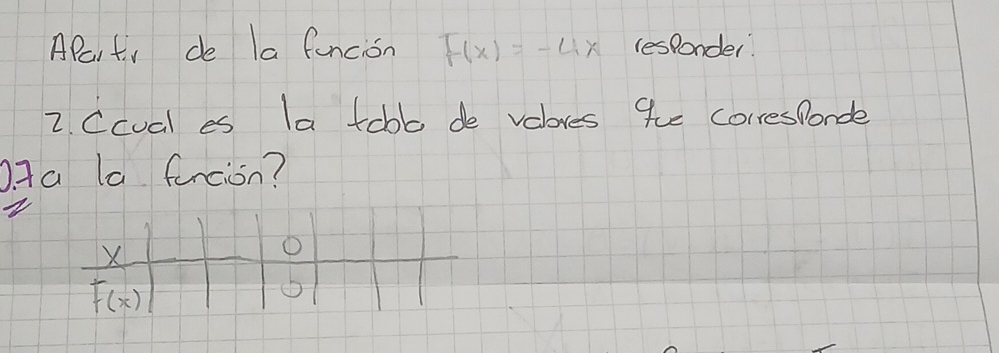 APartir de la función F(x) = -4x resPonder:
2. ¿cual es la tabla de valores que corresPonde
a la función?
x 0
F(x) 0